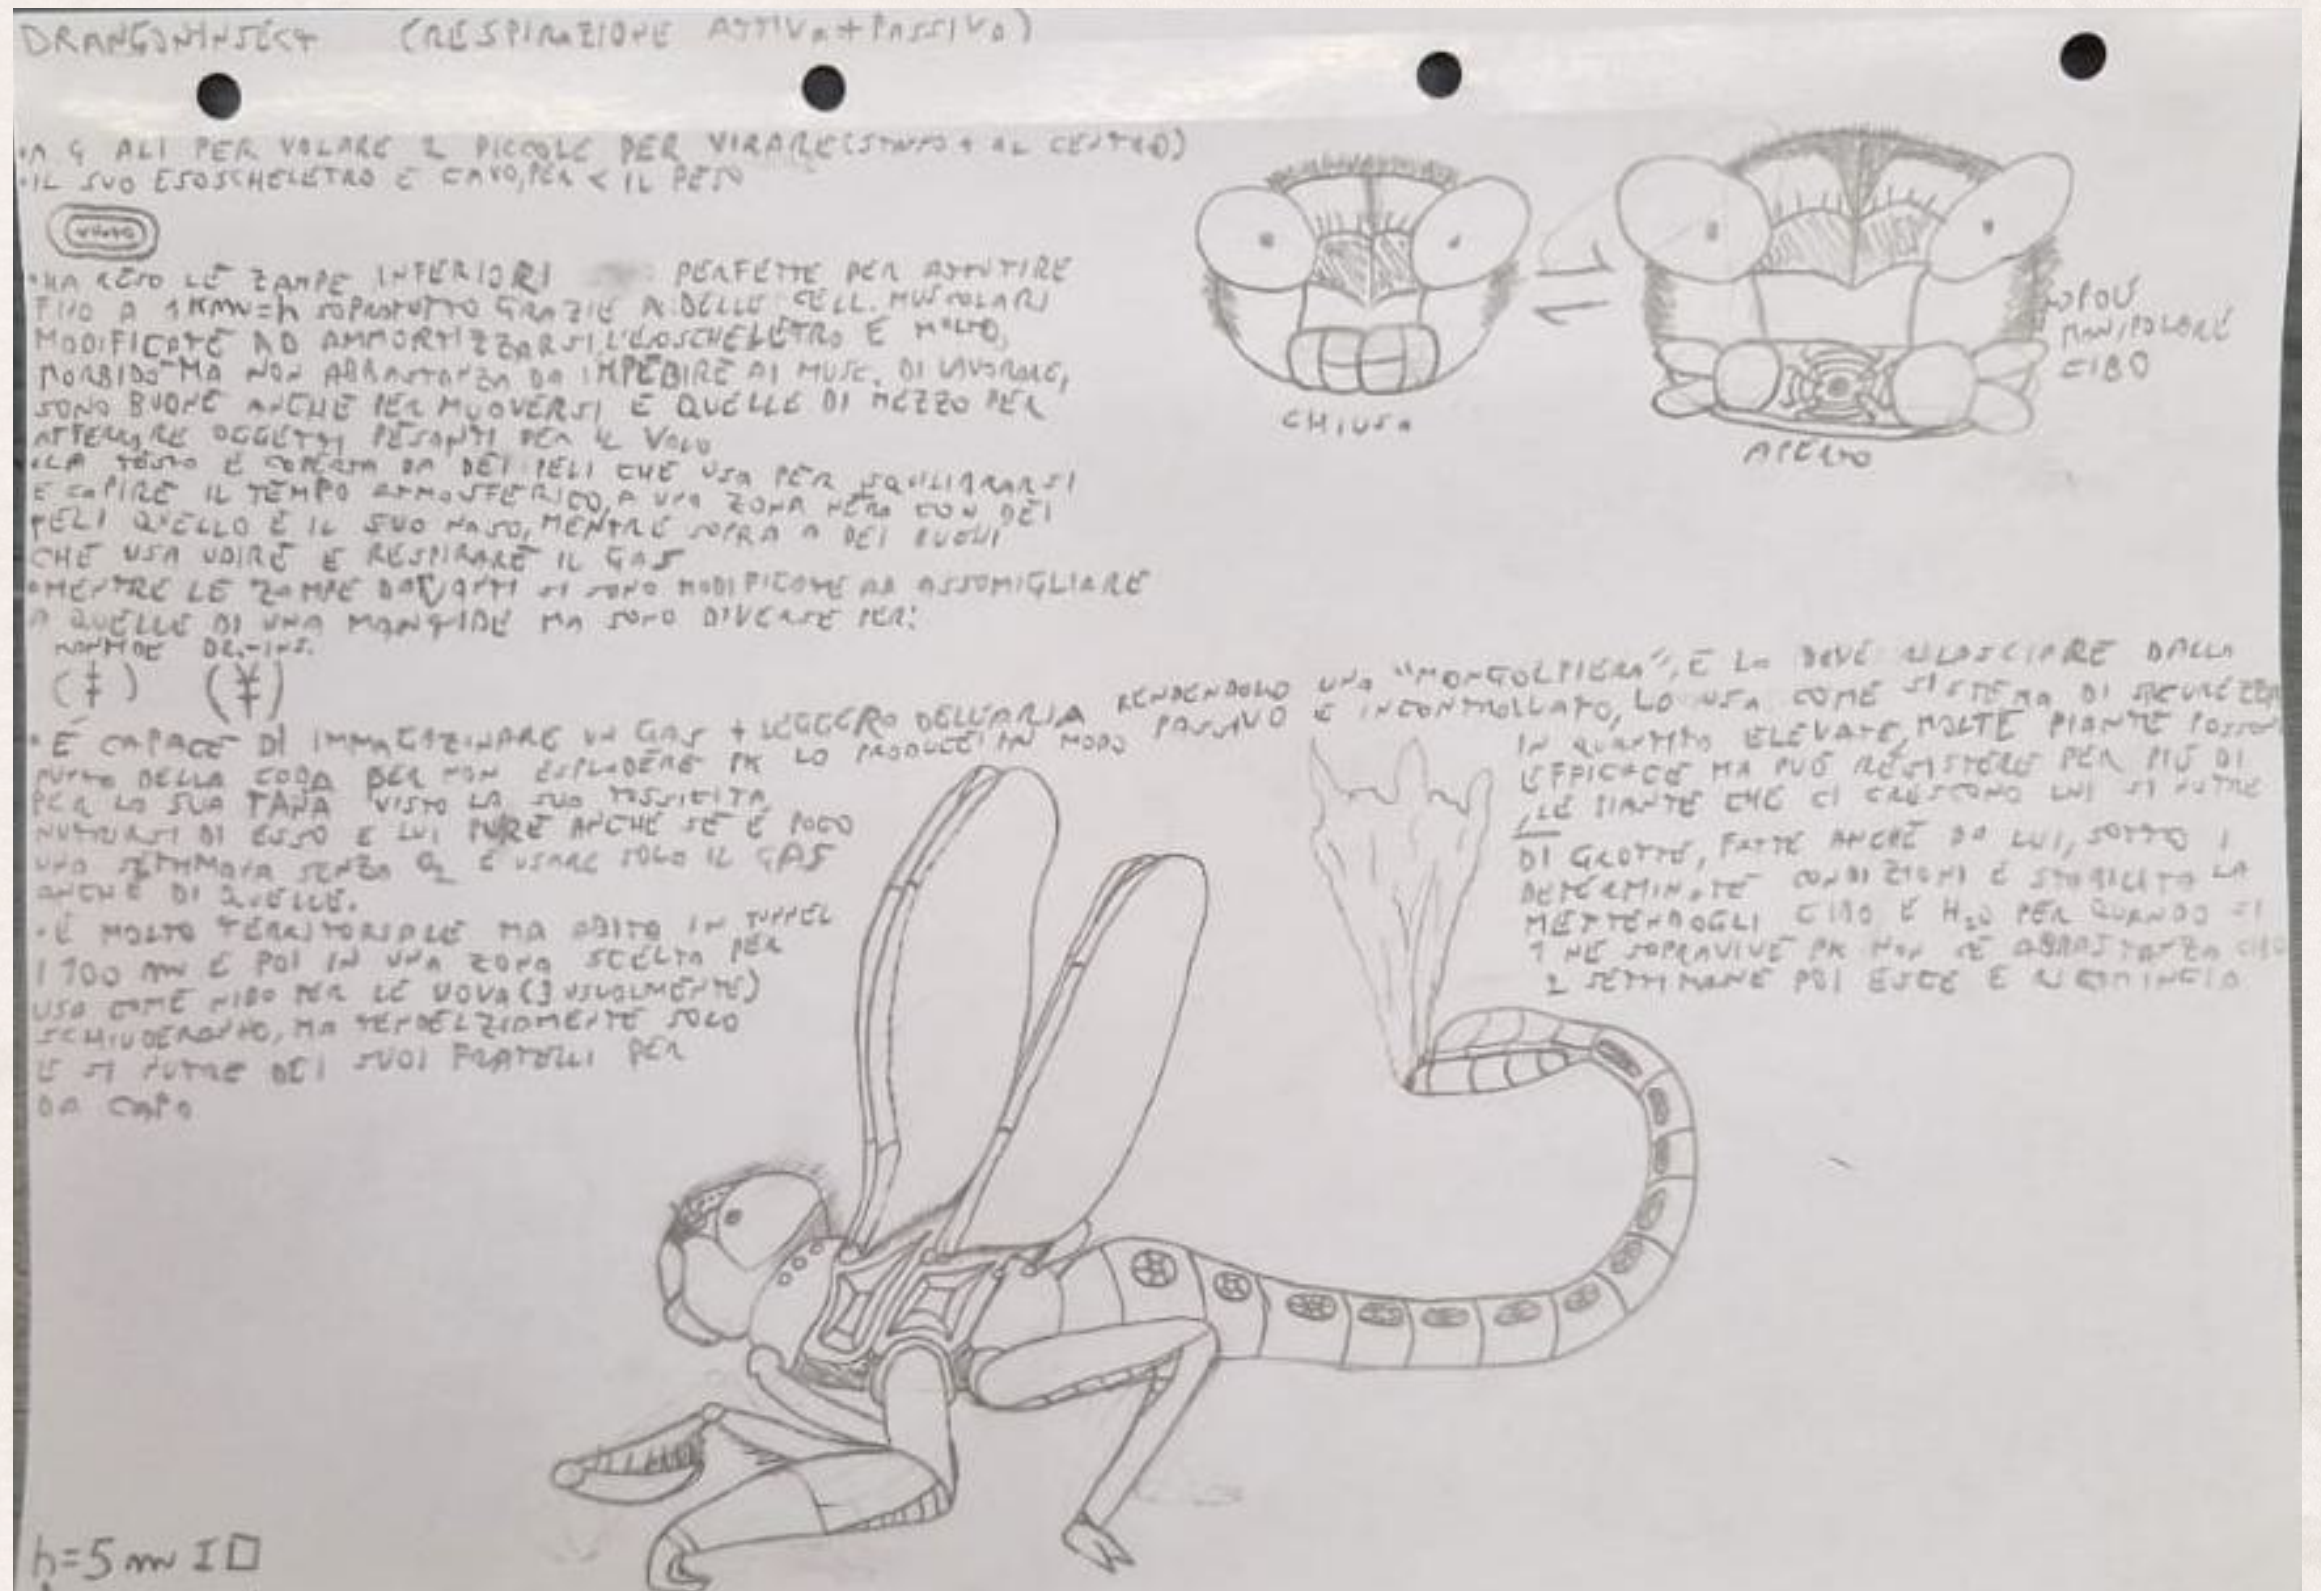 DRANGONINSECT (RESPIRAZIONE ATTIVA+PASSIVA)
•A 4 ALI PER VOLARE 2 PICCOLE PER VIRARE(STANNO + AL CENTRO)
•IL SUO ESOSCHELETRO E CAVO, PER < IL PESO
VUOTO
•HA RESO LE ZAMPE INFERIORI PERFETTE PER ATTUTIRE
FINO A 1KM=h SOPRATUTTO GRAZIE A DELLE CELL. MUSCOLARI
MODIFICATE AD AMMORTIZZARSI, L'ESOSCHELETRO E MOLTO,
MORBIDO MA NON ABBASTANZA DA IMPEDIRE AI MUSC. DI LAVORARE,
SONO BUONE ANCHE PER MUOVERSI E QUELLE DI MEZZO PER
AFFERRARE OGGETTI PESANTI PER IL VOLO
•LA TESTA E COPERTA DA DEI PELI CHE USA PER EQUILIBRARSI
E CAPIRE IL TEMPO ATMOSFERICO, A UNA ZONA NERA CON DEI
PELI QUELLO È IL SUO NASO, MENTRE SOPRA A DEI BUCHI
CHE USA UDIRE E RESPIRARE IL GAS
•MENTRE LE ZAMPE DAVANTI SI SONO MODIFICATE AD ASSOMIGLIARE
A QUELLE DI UNA MANTIDE MA SONO DIVERSE PER:
DR.-INS.
(‡) (¥)
•É CAPACE DI IMMAGAZINARE UN GAS + LEGGERO DELL'ARIA RENDENDOLO UNA "MONGOLFIERA", E LO DEVE RILASCIARE DALLA
PUNTA DELLA CODA PER NON ESPLODERE PK LO PRODUCE IN MODO PASSIVO E INCONTROLLATO, LO USA COME SISTEMA DI SICUREZZA
PER LA SUA TANA VISTO LA SUA TOSSICITA IN QUANTITA ELEVATE, MOLTE PIANTE POSSON
NUTRIRSI DI ESSO E LUI PURE ANCHE SE E POCO EFFICACE MA PUÒ RESISTERE PER PIÙ DI
UNA SETTIMANA SENZA O₂ E USARE SOLO IL GAS, LE PIANTE CHE CI CRESCONO LUI SI NUTRE
ANCHE DI QUELLE.
•È MOLTO TERRITORIALE MA ABITA IN TUNNEL DI GROTTE, FATTE ANCHE DA LUI, SOTTO I
1700 m E POI IN UNA ZONA SCELTA PER DETERMINATE CONDIZIONI E STABILITA LA
USA COME NIDO PER LE UOVA (3 USUALMENTE) METTENDOGLI CIBO E H₂O PER QUANDO SI
SCHIUDERANNO, MA SOLO 1 NE SOPRAVIVE PK NON CE ABBASTANZA CIBO
E SI NUTRE DEI SUOI FRATELLI PER 2 SETTIMANE POI ESCE E RICOMINCIA
DA CAPO
CHIUSA
APERTA
PUÒ
MANIPOLARE
CIBO
h=5 m I□